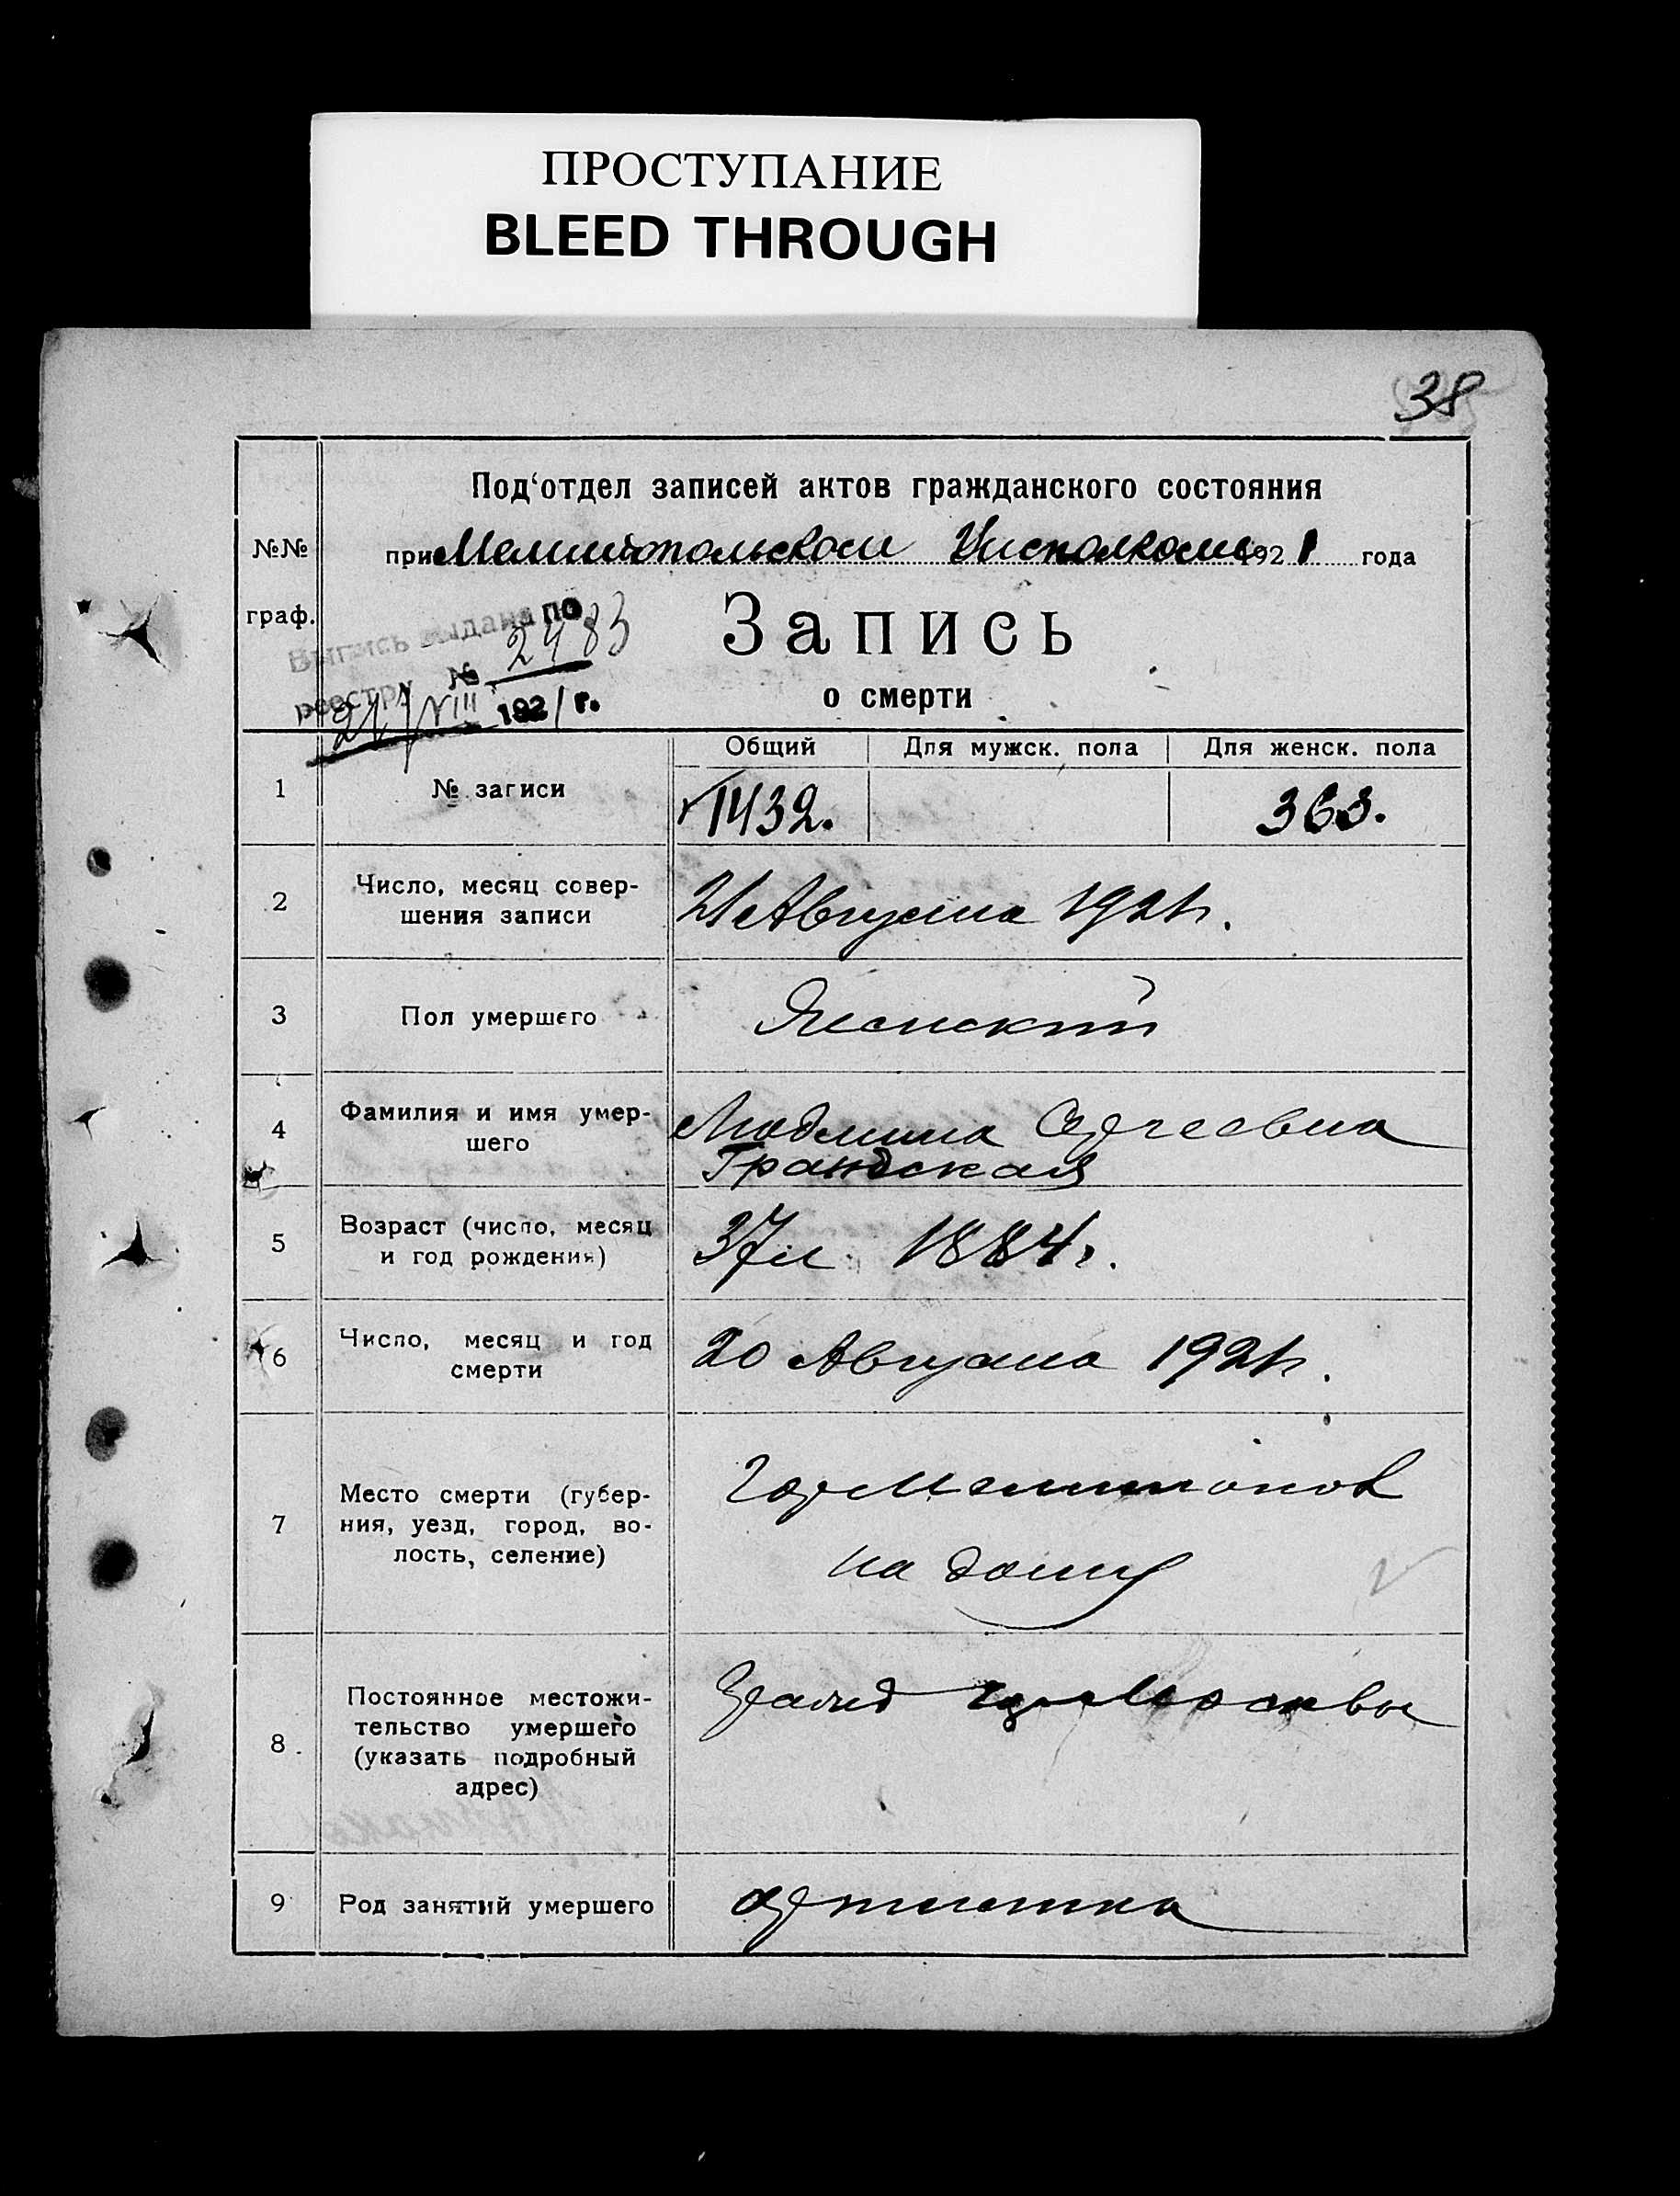 ПРОСТУПАНИЕ
BLEED THROUGH
38
Под‘отдел записей актов гражданского состояния
№№
при Мелитопольском Уисполкоме 1921 года
граф.
Запись
о смерти
Выпись выдана по
реестру № 2483
21/VIII 1921 г.
Общий Для мужск. пола Для женск. пола
1 № записи 1432. 363.
2 Число, месяц совер-
шения записи 21 Августа 1921 г.
3 Пол умершего Женский
4 Фамилия и имя умер-
шего Людмила Сергеевна
Грандская
5 Возраст (число, месяц
и год рождения) 37 л 1884 г.
6 Число, месяц и год
смерти 20 Августа 1921 г.
7 Место смерти (губер-
ния, уезд, город, во-
лость, селение)
гор Мелитополь
на дому
8 Постоянное местожи-
тельство умершего
(указать подробный
адрес)
гор Москвы
9 Род занятий умершего артистка